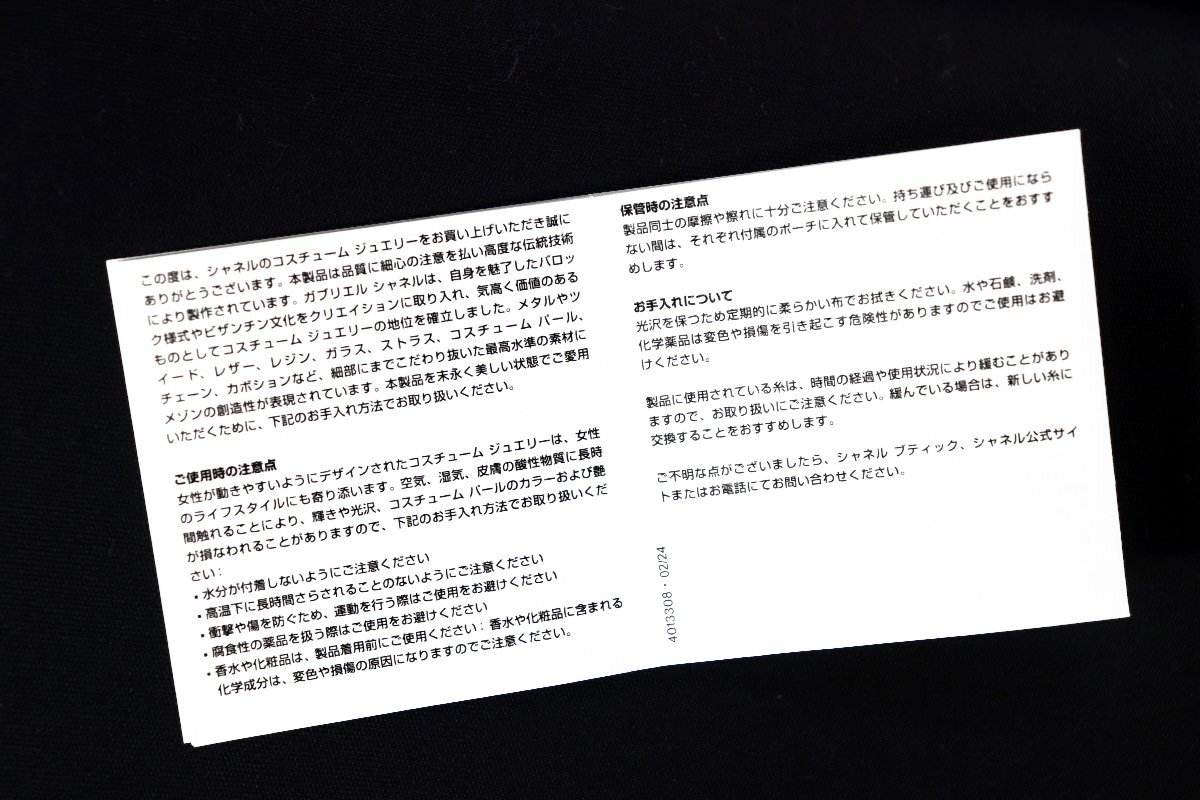 この度は、シャネルのコスチューム ジュエリーをお買い上げいただき誠に
ありがとうございます。本製品は品質に細心の注意を払い高度な伝統技術
により製作されています。ガブリエル シャネルは、自身を魅了したバロッ
ク様式やビザンチン文化をクリエイションに取り入れ、気高く価値のある
ものとしてコスチューム ジュエリーの地位を確立しました。メタルやツ
イード、レザー、レジン、ガラス、ストラス、コスチューム パール、
チェーン、カボションなど、細部にまでこだわり抜いた最高水準の素材に
メゾンの創造性が表現されています。本製品を末永く美しい状態でご愛用
いただくために、下記のお手入れ方法でお取り扱いください。
ご使用時の注意点
女性が動きやすいようにデザインされたコスチューム ジュエリーは、女性
のライフスタイルにも寄り添います。空気、湿気、皮膚の酸性物質に長時
間触れることにより、輝きや光沢、コスチューム パールのカラーおよび艶
が損なわれることがありますので、下記のお手入れ方法でお取り扱いくだ
さい:
・水分が付着しないようにご注意ください
・高温下に長時間さらされることのないようにご注意ください
・衝撃や傷を防ぐため、運動を行う際はご使用をお避けください
・腐食性の薬品を扱う際はご使用をお避けください
・香水や化粧品は、製品着用前にご使用ください: 香水や化粧品に含まれる
化学成分は、変色や損傷の原因になりますのでご注意ください。
保管時の注意点
製品同士の摩擦や擦れに十分ご注意ください。持ち運び及びご使用になら
ない間は、それぞれ付属のポーチに入れて保管していただくことをおすす
めします。
お手入れについて
光沢を保つため定期的に柔らかい布でお拭きください。水や石鹸、洗剤、
化学薬品は変色や損傷を引き起こす危険性がありますのでご使用はお避
けください。
製品に使用されている糸は、時間の経過や使用状況により緩むことがあり
ますので、お取り扱いにご注意ください。緩んでいる場合は、新しい糸に
交換することをおすすめします。
ご不明な点がございましたら、シャネル ブティック、シャネル公式サイ
トまたはお電話にてお問い合わせください。
4013308・02/24